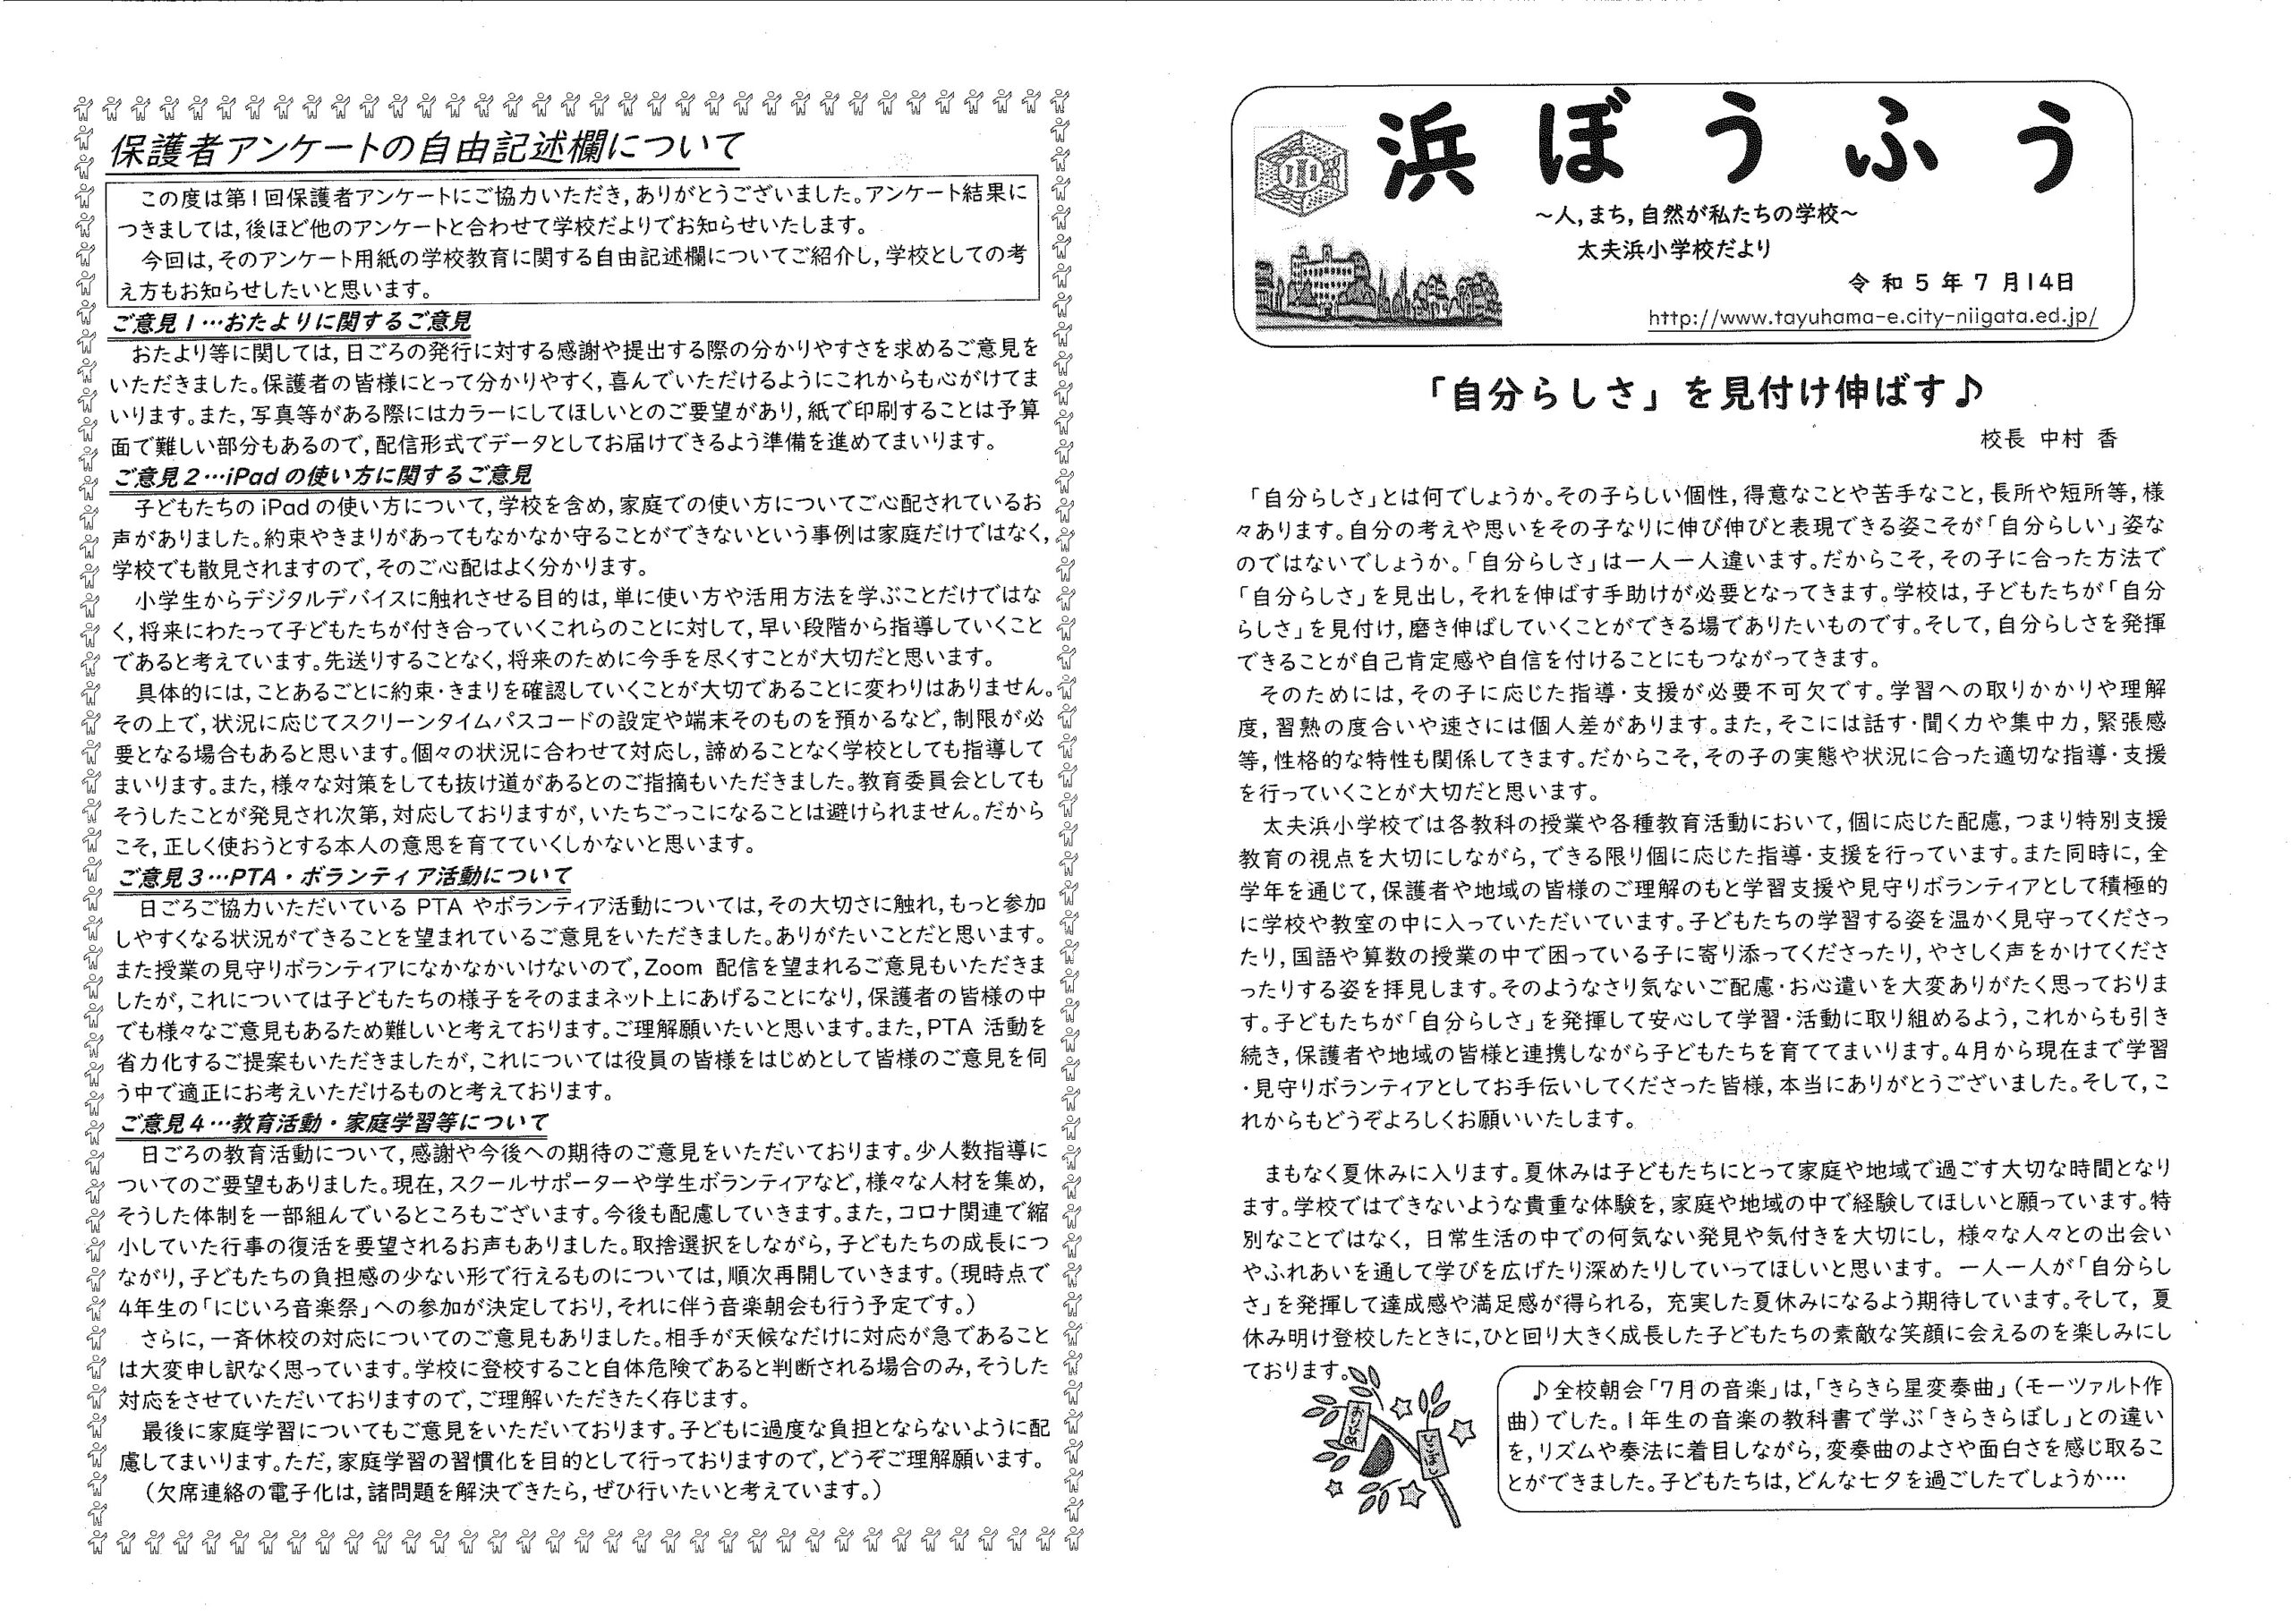 保護者アンケートの自由記述欄について
この度は第1回保護者アンケートにご協力いただき,ありがとうございました。アンケート結果に
つきましては,後ほど他のアンケートと合わせて学校だよりでお知らせいたします。
今回は,そのアンケート用紙の学校教育に関する自由記述欄についてご紹介し,学校としての考
え方もお知らせしたいと思います。
ご意見1…おたよりに関するご意見
おたより等に関しては,日ごろの発行に対する感謝や提出する際の分かりやすさを求めるご意見を
いただきました。保護者の皆様にとって分かりやすく,喜んでいただけるようにこれからも心がけてま
いります。また,写真等がある際にはカラーにしてほしいとのご要望があり,紙で印刷することは予算
面で難しい部分もあるので,配信形式でデータとしてお届けできるよう準備を進めてまいります。
ご意見2…iPadの使い方に関するご意見
子どもたちのiPadの使い方について,学校を含め,家庭での使い方についてご心配されているお
声がありました。約束やきまりがあってもなかなか守ることができないという事例は家庭だけではなく,
学校でも散見されますので,そのご心配はよく分かります。
小学生からデジタルデバイスに触れさせる目的は,単に使い方や活用方法を学ぶことだけではな
く,将来にわたって子どもたちが付き合っていくこれらのことに対して,早い段階から指導していくこと
であると考えています。先送りすることなく,将来のために今手を尽くすことが大切だと思います。
具体的には,ことあるごとに約束・きまりを確認していくことが大切であることに変わりはありません。
その上で,状況に応じてスクリーンタイムパスコードの設定や端末そのものを預かるなど,制限が必
要となる場合もあると思います。個々の状況に合わせて対応し,諦めることなく学校としても指導して
まいります。また,様々な対策をしても抜け道があるとのご指摘もいただきました。教育委員会としても
そうしたことが発見され次第,対応しておりますが,いたちごっこになることは避けられません。だから
こそ,正しく使おうとする本人の意思を育てていくしかないと思います。
ご意見3…PTA・ボランティア活動について
日ごろご協力いただいている PTA やボランティア活動については,その大切さに触れ,もっと参加
しやすくなる状況ができることを望まれているご意見をいただきました。ありがたいことだと思います。
また授業の見守りボランティアになかなかいけないので,Zoom 配信を望まれるご意見もいただきま
したが,これについては子どもたちの様子をそのままネット上にあげることになり,保護者の皆様の中
でも様々なご意見もあるため難しいと考えております。ご理解願いたいと思います。また,PTA 活動を
省力化するご提案もいただきましたが,これについては役員の皆様をはじめとして皆様のご意見を伺
う中で適正にお考えいただけるものと考えております。
ご意見4…教育活動・家庭学習等について
日ごろの教育活動について,感謝や今後への期待のご意見をいただいております。少人数指導に
ついてのご要望もありました。現在,スクールサポーターや学生ボランティアなど,様々な人材を集め,
そうした体制を一部組んでいるところもございます。今後も配慮していきます。また,コロナ関連で縮
小していた行事の復活を要望されるお声もありました。取捨選択をしながら,子どもたちの成長につ
ながり,子どもたちの負担感の少ない形で行えるものについては,順次再開していきます。(現時点で
4年生の「にじいろ音楽祭」への参加が決定しており,それに伴う音楽朝会も行う予定です。)
さらに,一斉休校の対応についてのご意見もありました。相手が天候なだけに対応が急であること
は大変申し訳なく思っています。学校に登校すること自体危険であると判断される場合のみ,そうした
対応をさせていただいておりますので,ご理解いただきたく存じます。
最後に家庭学習についてもご意見をいただいております。子どもに過度な負担とならないように配
慮してまいります。ただ,家庭学習の習慣化を目的として行っておりますので,どうぞご理解願います。
(欠席連絡の電子化は,諸問題を解決できたら,ぜひ行いたいと考えています。)
浜ぼうふう
～人,まち,自然が私たちの学校～
太夫浜小学校だより
令和5年7月14日
http://www.tayuhama-e.city-niigata.ed.jp/
「自分らしさ」を見付け伸ばす♪
校長 中村 香
「自分らしさ」とは何でしょうか。その子らしい個性,得意なことや苦手なこと,長所や短所等,様
々あります。自分の考えや思いをその子なりに伸び伸びと表現できる姿こそが「自分らしい」姿な
のではないでしょうか。「自分らしさ」は一人一人違います。だからこそ,その子に合った方法で
「自分らしさ」を見出し,それを伸ばす手助けが必要となってきます。学校は,子どもたちが「自分
らしさ」を見付け,磨き伸ばしていくことができる場でありたいものです。そして,自分らしさを発揮
できることが自己肯定感や自信を付けることにもつながってきます。
そのためには,その子に応じた指導・支援が必要不可欠です。学習への取りかかりや理解
度,習熟の度合いや速さには個人差があります。また,そこには話す・聞く力や集中力,緊張感
等,性格的な特性も関係してきます。だからこそ,その子の実態や状況に合った適切な指導・支援
を行っていくことが大切だと思います。
太夫浜小学校では各教科の授業や各種教育活動において,個に応じた配慮,つまり特別支援
教育の視点を大切にしながら,できる限り個に応じた指導・支援を行っています。また同時に,全
学年を通じて,保護者や地域の皆様のご理解のもと学習支援や見守りボランティアとして積極的
に学校や教室の中に入っていただいています。子どもたちの学習する姿を温かく見守ってくださっ
たり,国語や算数の授業の中で困っている子に寄り添ってくださったり,やさしく声をかけてくださ
ったりする姿を拝見します。そのようなさり気ないご配慮・お心遣いを大変ありがたく思っておりま
す。子どもたちが「自分らしさ」を発揮して安心して学習・活動に取り組めるよう,これからも引き
続き,保護者や地域の皆様と連携しながら子どもたちを育ててまいります。4月から現在まで学習
・見守りボランティアとしてお手伝いしてくださった皆様,本当にありがとうございました。そして,こ
れからもどうぞよろしくお願いいたします。
まもなく夏休みに入ります。夏休みは子どもたちにとって家庭や地域で過ごす大切な時間となり
ます。学校ではできないような貴重な体験を,家庭や地域の中で経験してほしいと願っています。特
別なことではなく, 日常生活の中での何気ない発見や気付きを大切にし, 様々な人々との出会い
やふれあいを通して学びを広げたり深めたりしていってほしいと思います。 一人一人が「自分らし
さ」を発揮して達成感や満足感が得られる, 充実した夏休みになるよう期待しています。そして, 夏
休み明け登校したときに,ひと回り大きく成長した子どもたちの素敵な笑顔に会えるのを楽しみにし
ております。
おりひめ
ひこぼし
♪全校朝会「7月の音楽」は,「きらきら星変奏曲」(モーツァルト作
曲)でした。1年生の音楽の教科書で学ぶ「きらきらぼし」との違い
を,リズムや奏法に着目しながら,変奏曲のよさや面白さを感じ取るこ
とができました。子どもたちは,どんな七夕を過ごしたでしょうか…